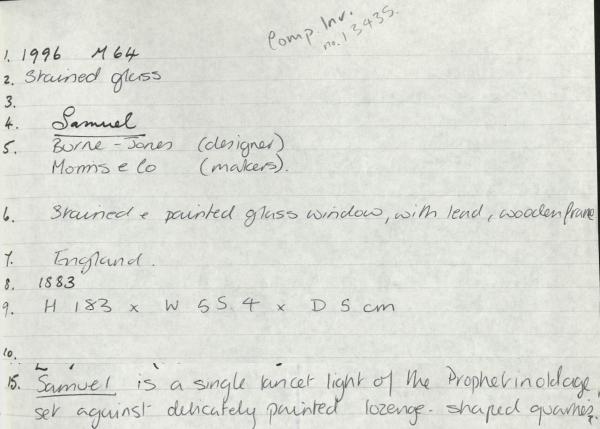 Comp. Inv.
no. 13435.
1. 1996 M64
2. Stained glass
3.
4. Samuel
5. Burne-Jones (designer)
Morris & Co (makers).
6. Stained & painted glass window, with lead, wooden frame
7. England.
8. 1883
9. H 183 x W 55.4 x D 5 cm
10.
15. Samuel is a single lancet light of the Prophet in old age,
set against delicately painted lozenge-shaped quarries.